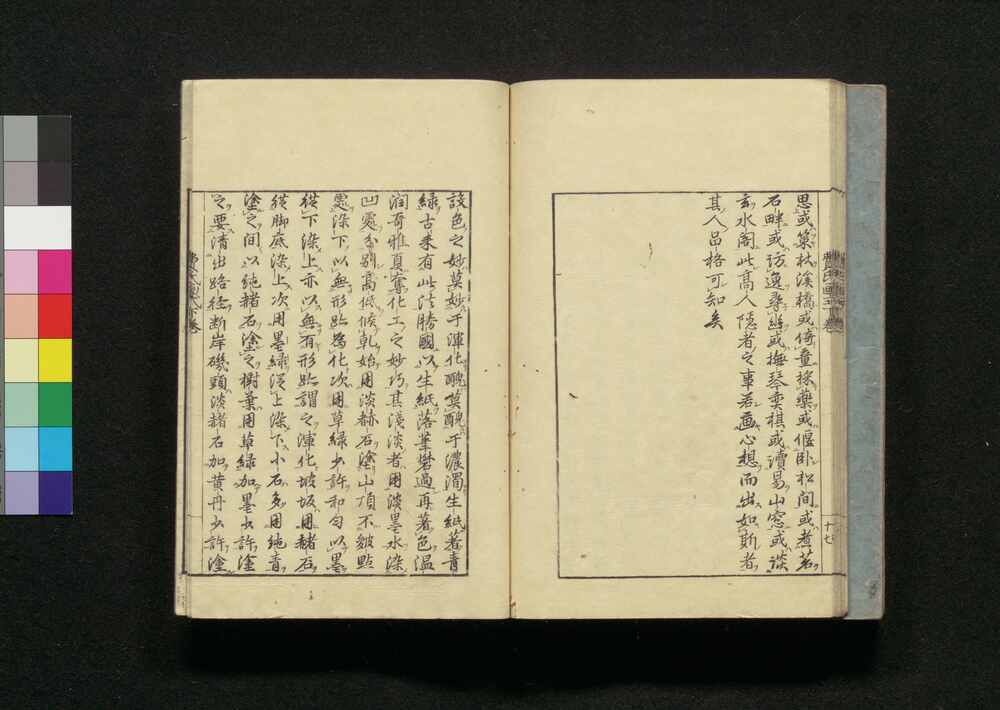 思或策杖溪橋或倚童採藥或偃卧松间或煮茗
石畔或访逸尋幽或撫琴奕棋或讀易山窓或談
玄水阁此高人隠者之事若画心想而出如斯者
其人品格可知矣
十七
設色之妙莫妙于渾化醜莫醜于濃濁生紙著青
緑古来有此法勝國以生紙落筆礬過再著色温
润奇雅夏奪化工之妙巧其淺淡者用淡墨水染
凹處分别高低候乾始用淡赫石塗山頂不皴點
處染下以無形跡爲化次用草緑少許和匀以墨
從下染上亦以無有形跡謂之渾化坡坂用赭石
從脚底染上次用墨緑從上染下小石多用純青
塗之间以純赭石塗之樹葉用草緑加墨少許塗
之要清出路径断岸磯頭淡赭石加黄丹少許塗